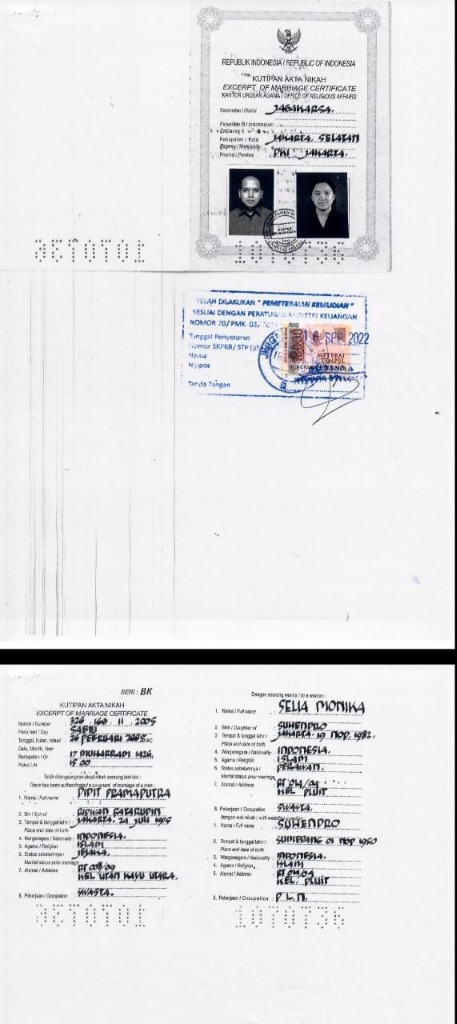 REPUBLIK INDONESIA / REPUBLIC OF INDONESIA
KUTIPAN AKTA NIKAH
EXCERPT OF MARRIAGE CERTIFICATE
KANTOR URUSAN AGAMA / OFFICE OF RELIGIOUS AFFAIRS
Kecamatan / District JAGAKARSA.
Perwakilan RI /
Kabupaten / Kota JAKARTA SELATAN
Propinsi / Province DKI JAKARTA.
1070736
1070736
TELAH DILAKUKAN "PEMETERAIAN KEMUDIAN"
SESUAI DENGAN PERATURAN MENTERI KEUANGAN
NOMOR 70/PMK 03/
Tanggal Penyetoran SEP 2022
Nomor SEPKB / STP
Nama
Nippos
METERAI
TEMPEL
Tanda Tangan
SERI : BK
KUTIPAN AKTA NIKAH
EXCERPT OF MARRIAGE CERTIFICATE
Nomor / Number : 326 160 11 2005
Pada hari / Day SABTU
Tanggal, bulan, tahun 26 FEBRUARI 2005
Date, Month, Year
Bertepatan 17 MUHARRAM 1426.
Pukul / At 15 00
Telah dilangsungkan akad nikah seorang laki-laki :
There has been authenticated a covenant of marriage of a man :
1. Nama / Full name : PIPIT PRAMA PUTRA
2. Bin / Son of
3. Tempat & tanggal lahir : JAKARTA, 24 JULI
Place and date of birth
4. Warganegara / Nationality INDONESIA.
5. Agama / Religion ISLAM
6. Status sebelumnya JEJAKA.
Marital status prior marriage
7. Alamat / Address RT
KEL UTAN KAYU UTARA.
8. Pekerjaan / Occupation SWASTA.
1070736
Dengan seorang wanita / to a woman :
1. Nama / Full name : SELIA MONIKA
2. Binti / Daughter of SUHENDRO
3. Tempat & tanggal lahir : JAKARTA 19 NOP. 1982.
Place and date of birth
4. Warganegara / Nationality INDONESIA.
5. Agama / Religion ISLAM
6. Status sebelumnya PERAWAN.
Marital status prior marriage
7. Alamat / Address RT 04/04
KEL PLUIT
8. Pekerjaan / Occupation SWASTA.
dengan wali nikah /
1. Nama / Full name : SUHENDRO
2. Tempat & tanggal lahir : SUMEDANG 01 NOP 1950
Place and date of birth
3. Warganegara / Nationality INDONESIA.
4. Agama / Religion ISLAM
5. Alamat / Address RT 04/04
KEL. PLUIT
6. Pekerjaan / Occupation : P L N.
1070736